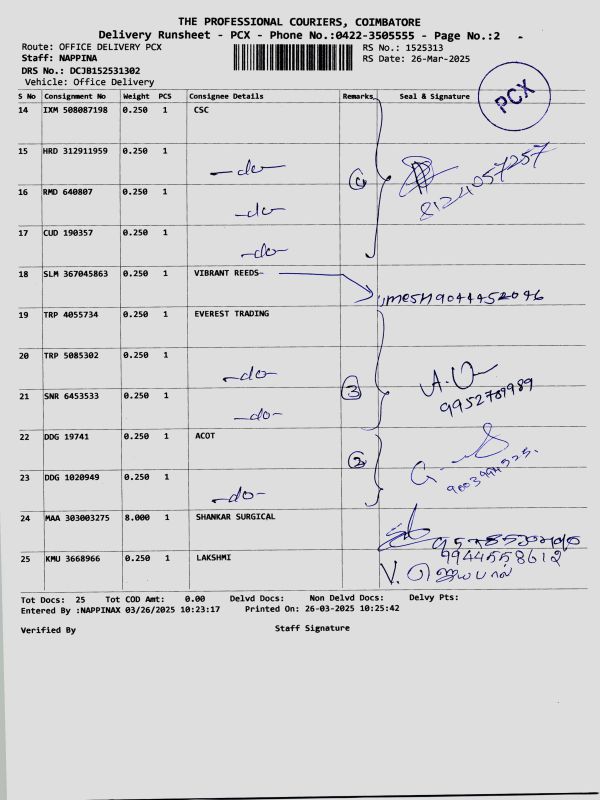 THE PROFESSIONAL COURIERS, COIMBATORE
Delivery Runsheet - PCX - Phone No.:0422-3505555 - Page No.:2 -
Route: OFFICE DELIVERY PCX RS No.: 1525313
Staff: NAPPINA RS Date: 26-Mar-2025
DRS No.: DCJB152531302
Vehicle: Office Delivery
PCX
S No Consignment No Weight PCS Consignee Details Remarks Seal & Signature
14 IXM 508087198 0.250 1 CSC
15 HRD 312911959 0.250 1 -do-
8124057257
16 RMD 640807 0.250 1 -do-
17 CUD 190357 0.250 1 -do-
18 SLM 367045863 0.250 1 VIBRANT REEDS
umesh 9044452046
19 TRP 4055734 0.250 1 EVEREST TRADING
20 TRP 5085302 0.250 1 -do-
21 SNR 6453533 0.250 1 -do- 3
9952709989
22 DDG 19741 0.250 1 ACOT
2
23 DDG 1020949 0.250 1 -do-
24 MAA 303003275 8.000 1 SHANKAR SURGICAL
25 KMU 3668966 0.250 1 LAKSHMI
9944558612
V. ஜெயபால்
Tot Docs: 25 Tot COD Amt: 0.00 Delvd Docs: Non Delvd Docs: Delvy Pts:
Entered By :NAPPINAX 03/26/2025 10:23:17 Printed On: 26-03-2025 10:25:42
Verified By Staff Signature